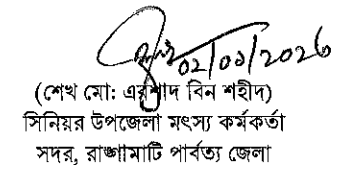 02/01/2026
(শেখ মো: এরশাদ বিন শহীদ)
সিনিয়র উপজেলা মৎস্য কর্মকর্তা
সদর, রাঙ্গামাটি পার্বত্য জেলা